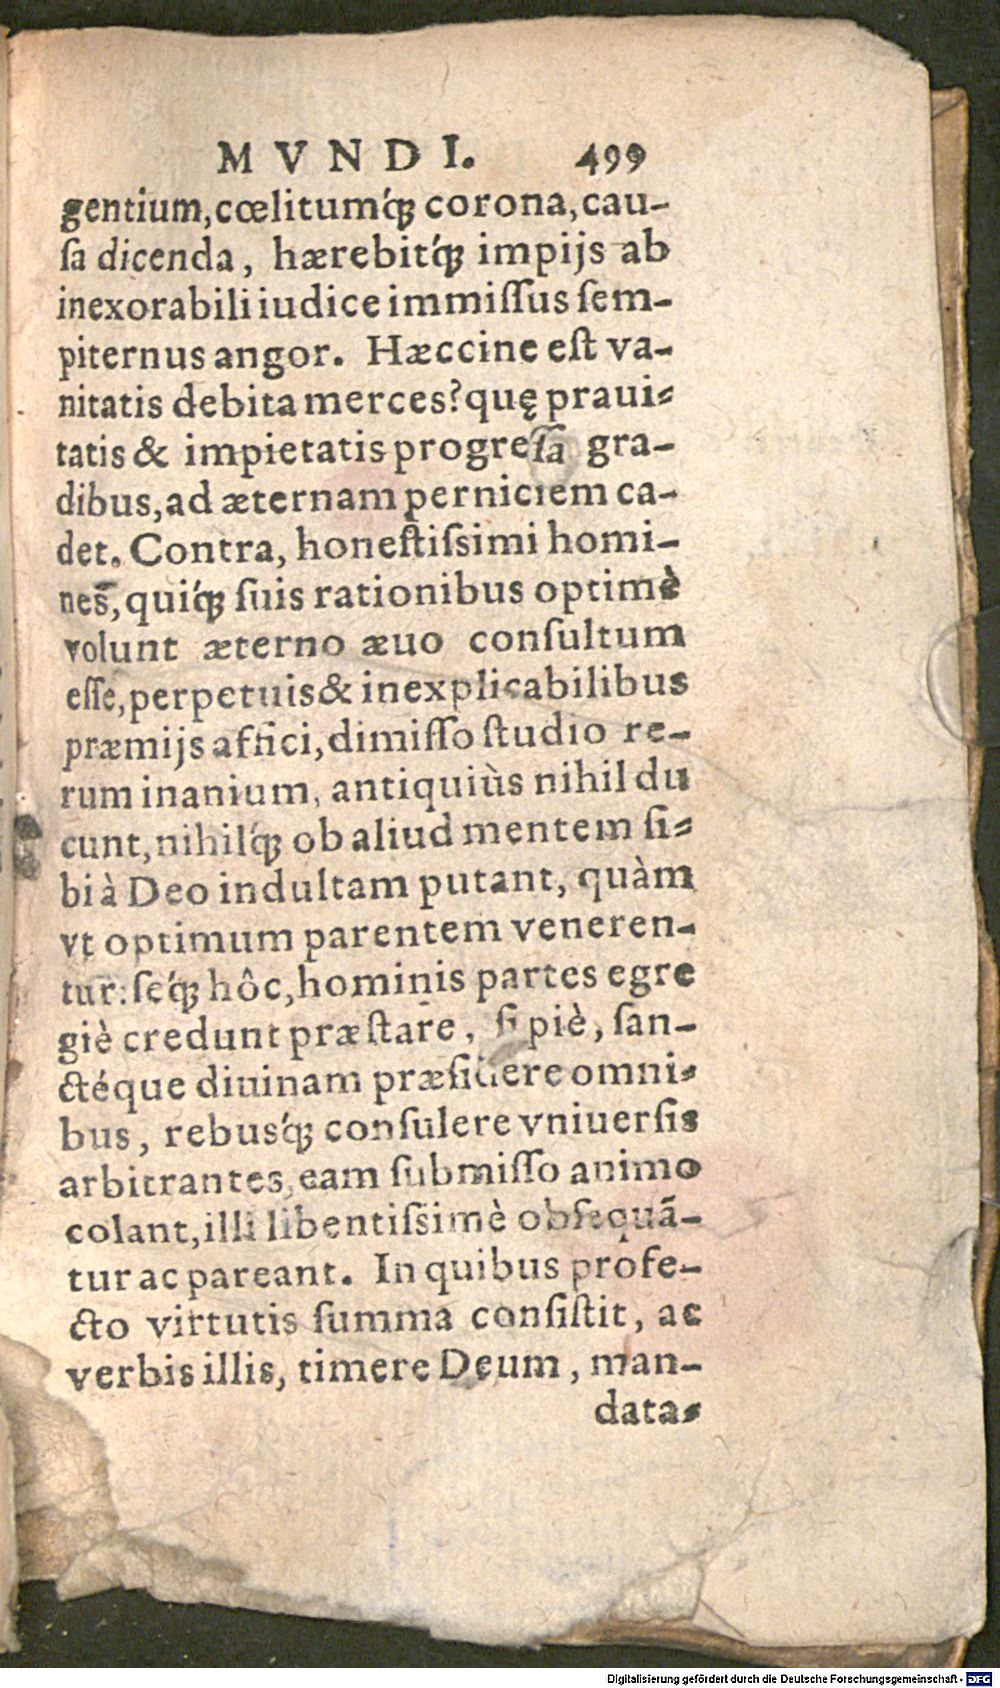 MVNDI. 499
gentium, cœlitumq́ꝫ corona, cau-
ſa dicenda, hærebitq́ꝫ impijs ab
inexorabili iudice immiſſus ſem-
piternus angor. Hæccine eſt va-
nitatis debita merces? quę praui-
tatis & impietatis progreſſa gra-
dibus, ad æternam perniciem ca-
det. Contra, honeſtiſsimi homi-
nes, quiq́ꝫ ſuis rationibus optimè
volunt æterno æuo conſultum
eſſe, perpetuis & inexplicabilibus
præmijs affici, dimiſſo ſtudio re-
rum inanium, antiquiùs nihil du
cunt, nihilq́ꝫ ob aliud mentem ſi-
bi à Deo indultam putant, quàm
vt optimum parentem veneren-
tur: ſeq́ꝫ hôc, hominis partes egre
giè credunt præſtare, ſi piè, ſan-
ctéque diuinam præſidere omni-
bus, rebusq́ꝫ conſulere vniuerſis
arbitrantes, eam ſubmiſſo animo
colant, illi libentiſsimè obſequã-
tur ac pareant. In quibus profe-
cto virtutis ſumma conſiſtit, ac
verbis illis, timere Deum, man-
data-
Digitalisierung gefördert durch die Deutsche Forschungsgemeinschaft - DFG